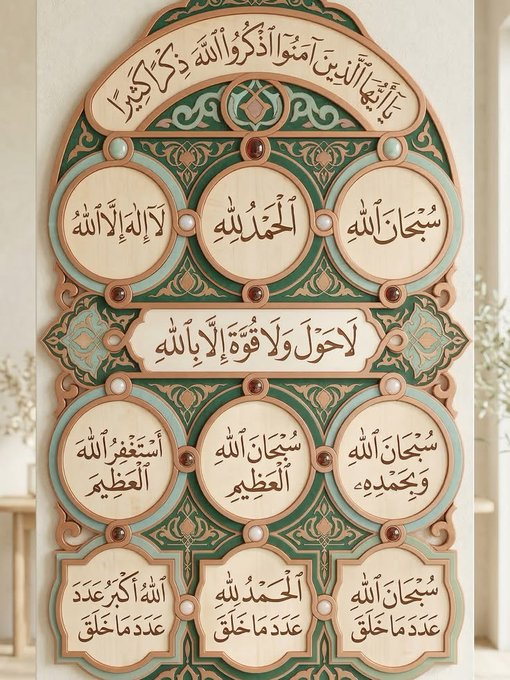 يَا أَيُّهَا الَّذِينَ آمَنُوا اذْكُرُوا اللَّهَ ذِكْرًا كَثِيرًا
سُبْحَانَ اللَّهِ
الْحَمْدُ لِلَّهِ
لَا إِلَٰهَ إِلَّا اللَّهُ
لَا حَوْلَ وَلَا قُوَّةَ إِلَّا بِاللَّهِ
سُبْحَانَ اللَّهِ
وَبِحَمْدِهِ
سُبْحَانَ اللَّهِ
الْعَظِيمِ
أَسْتَغْفِرُ اللَّهَ
الْعَظِيمَ
سُبْحَانَ اللَّهِ
عَدَدَ مَا خَلَقَ
الْحَمْدُ لِلَّهِ
عَدَدَ مَا خَلَقَ
اللَّهُ أَكْبَرُ عَدَدَ
عَدَدَ مَا خَلَقَ